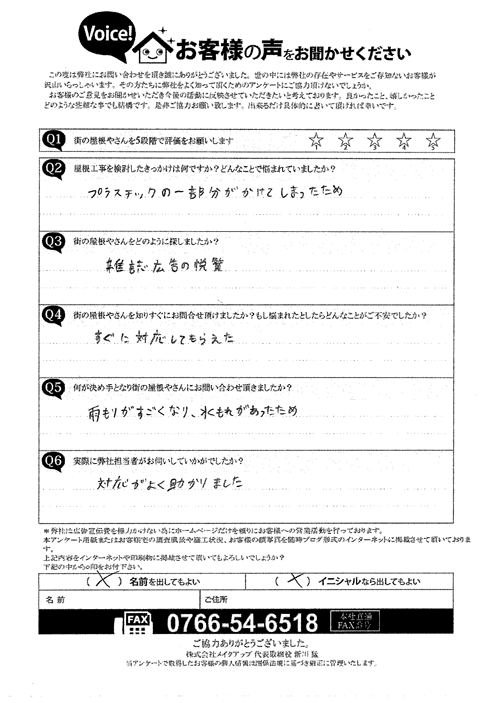 Voice!
お客様の声をお聞かせください
この度は弊社にお問い合わせを頂き誠にありがとうございました。世の中には弊社の存在やサービスをご存知ないお客様が
沢山いらっしゃいます。その方たちに弊社をよく知って頂くためのアンケートにご協力頂けないでしょうか。
お客様のご意見をお聞かせいただき今後の活動に反映させていただきたいと考えております。良かったこと、嬉しかったこと
どのような些細な事でも結構です。是非ご協力お願い致します。出来るだけ具体的に書いて頂ければ幸いです。
Q1 街の屋根やさんを5段階で評価をお願いします
1 2 3 4 5
Q2 屋根工事を検討したきっかけは何ですか?どんなことで悩まれていましたか?
プラスチックの一部分がかけてしまったため
Q3 街の屋根やさんをどのように探しましたか?
雑誌広告の悦覧
Q4 街の屋根やさんを知りすぐにお問合せ頂けましたか?もし悩まれたとしたらどんなことがご不安でしたか?
すぐに対応してもらえた
Q5 何が決め手となり街の屋根やさんにお問い合わせ頂きましたか?
雨もりがすごくなり、水もれがあったため
Q6 実際に弊社担当者がお伺いしていかがでしたか?
対応がよく助かりました
*弊社は広告宣伝費を極力かけない為にホームページだけを頼りにお客様への営業活動を行っております。
本アンケート用紙またはお客様宅の調査風景や施工状況、お客様の顔写真を随時ブログ形式のインターネットに掲載させて頂いておりま
す。
上記内容をインターネットや印刷物に掲載させて頂いてもよろしいでしょうか?
下記の中から○印をお付下さい。
( × ) 名前を出してもよい ( × ) イニシャルなら出してもよい
名 前 ご住所
FAX 0766-54-6518 本社直通 FAX番号
ご協力ありがとうございました。
株式会社メイクアップ 代表取締役 新川 猛
当アンケートで取得したお客様の個人情報は関係法規に基づき厳正に管理いたします。